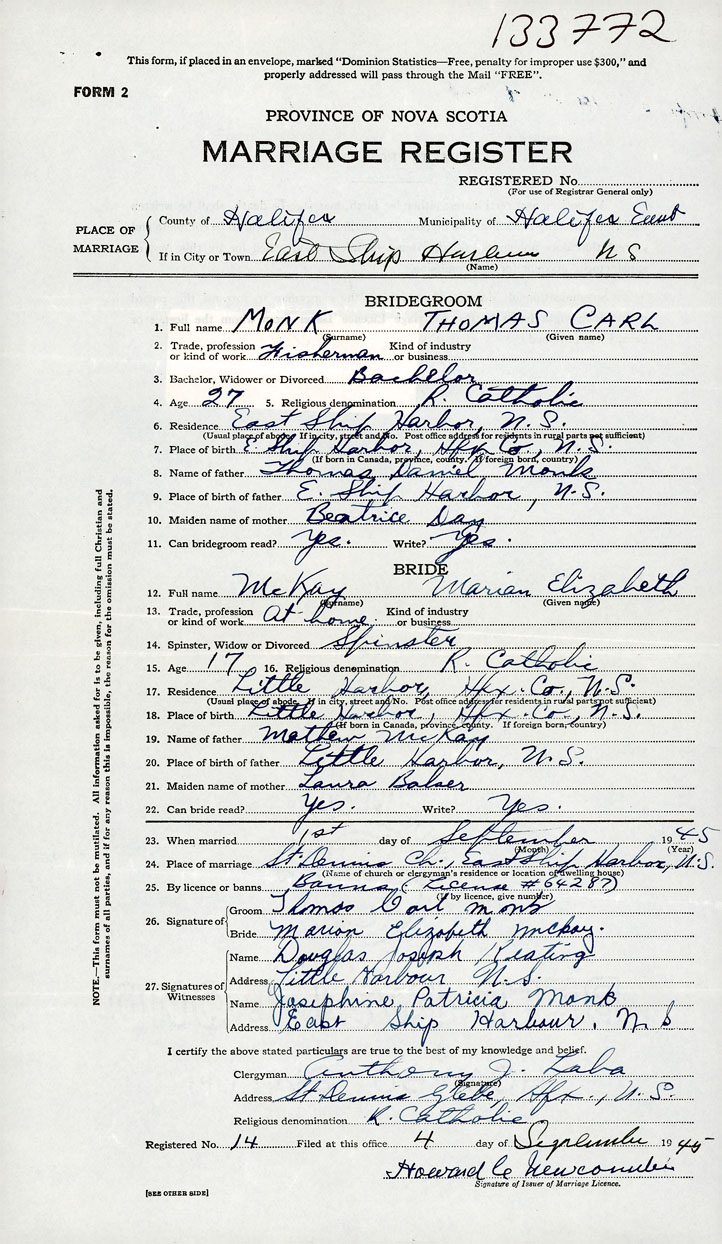 133772
This form, if placed in an envelope, marked "Dominion Statistics—Free, penalty for improper use $300," and
properly addressed will pass through the Mail "FREE".
FORM 2
PROVINCE OF NOVA SCOTIA
MARRIAGE REGISTER
REGISTERED No.
(For use of Registrar General only)
PLACE OF MARRIAGE
County of Halifax Municipality of Halifax East
If in City or Town East Ship Harbour N S
(Name)
BRIDEGROOM
1. Full name MONK THOMAS CARL
(Surname) (Given name)
2. Trade, profession or kind of work Fisherman Kind of industry or business
3. Bachelor, Widower or Divorced Bachelor
4. Age 27 5. Religious denomination R. Catholic
6. Residence East Ship Harbor, N.S.
(Usual place of abode. If in city, street and No. Post office address for residents in rural parts not sufficient)
7. Place of birth E Ship Harbor, Hfx Co., N.S.
(If born in Canada, province, county. If foreign born, country)
8. Name of father Thomas Daniel Monk
9. Place of birth of father E. Ship Harbor, N.S.
10. Maiden name of mother Beatrice Day
11. Can bridegroom read? Yes. Write? Yes.
BRIDE
12. Full name McKay Marian Elizabeth
(Surname) (Given name)
13. Trade, profession or kind of work At home Kind of industry or business
14. Spinster, Widow or Divorced Spinster
15. Age 17 16. Religious denomination R. Catholic
17. Residence Little Harbor, Hfx. Co., N.S.
(Usual place of abode. If in city, street and No. Post office address for residents in rural parts not sufficient)
18. Place of birth Little Harbor, Hfx. Co., N.S.
(If born in Canada, province, county. If foreign born, country)
19. Name of father Mathew McKay
20. Place of birth of father Little Harbor, N.S.
21. Maiden name of mother Laura Balser
22. Can bride read? Yes. Write? Yes.
23. When married 1st day of September 1945
(Month) (Year)
24. Place of marriage St. Dennis Ch., East Ship Harbor, N.S.
(Name of church or clergyman's residence or location of dwelling house)
25. By licence or banns Banns (License #64287)
(If by licence, give number)
26. Signature of
Groom Thomas Carl Monk
Bride Marion Elizabeth McKay.
27. Signatures of Witnesses
Name Douglas Joseph Keating
Address Little Harbour N.S.
Name Josephine Patricia Monk
Address East Ship Harbour, N S
I certify the above stated particulars are true to the best of my knowledge and belief.
Clergyman Anthony J. Laba
(Signature)
Address St Dennis Glebe, Hfx., N.S.
Religious denomination R. Catholic
Registered No. 14 Filed at this office 4 day of September 1945
Howard C Newcombe
Signature of Issuer of Marriage Licence.
[SEE OTHER SIDE]
NOTE.—This form must not be mutilated. All information asked for is to be given, including full Christian and
surnames of all parties, and if for any reason this is impossible, the reason for the omission must be stated.